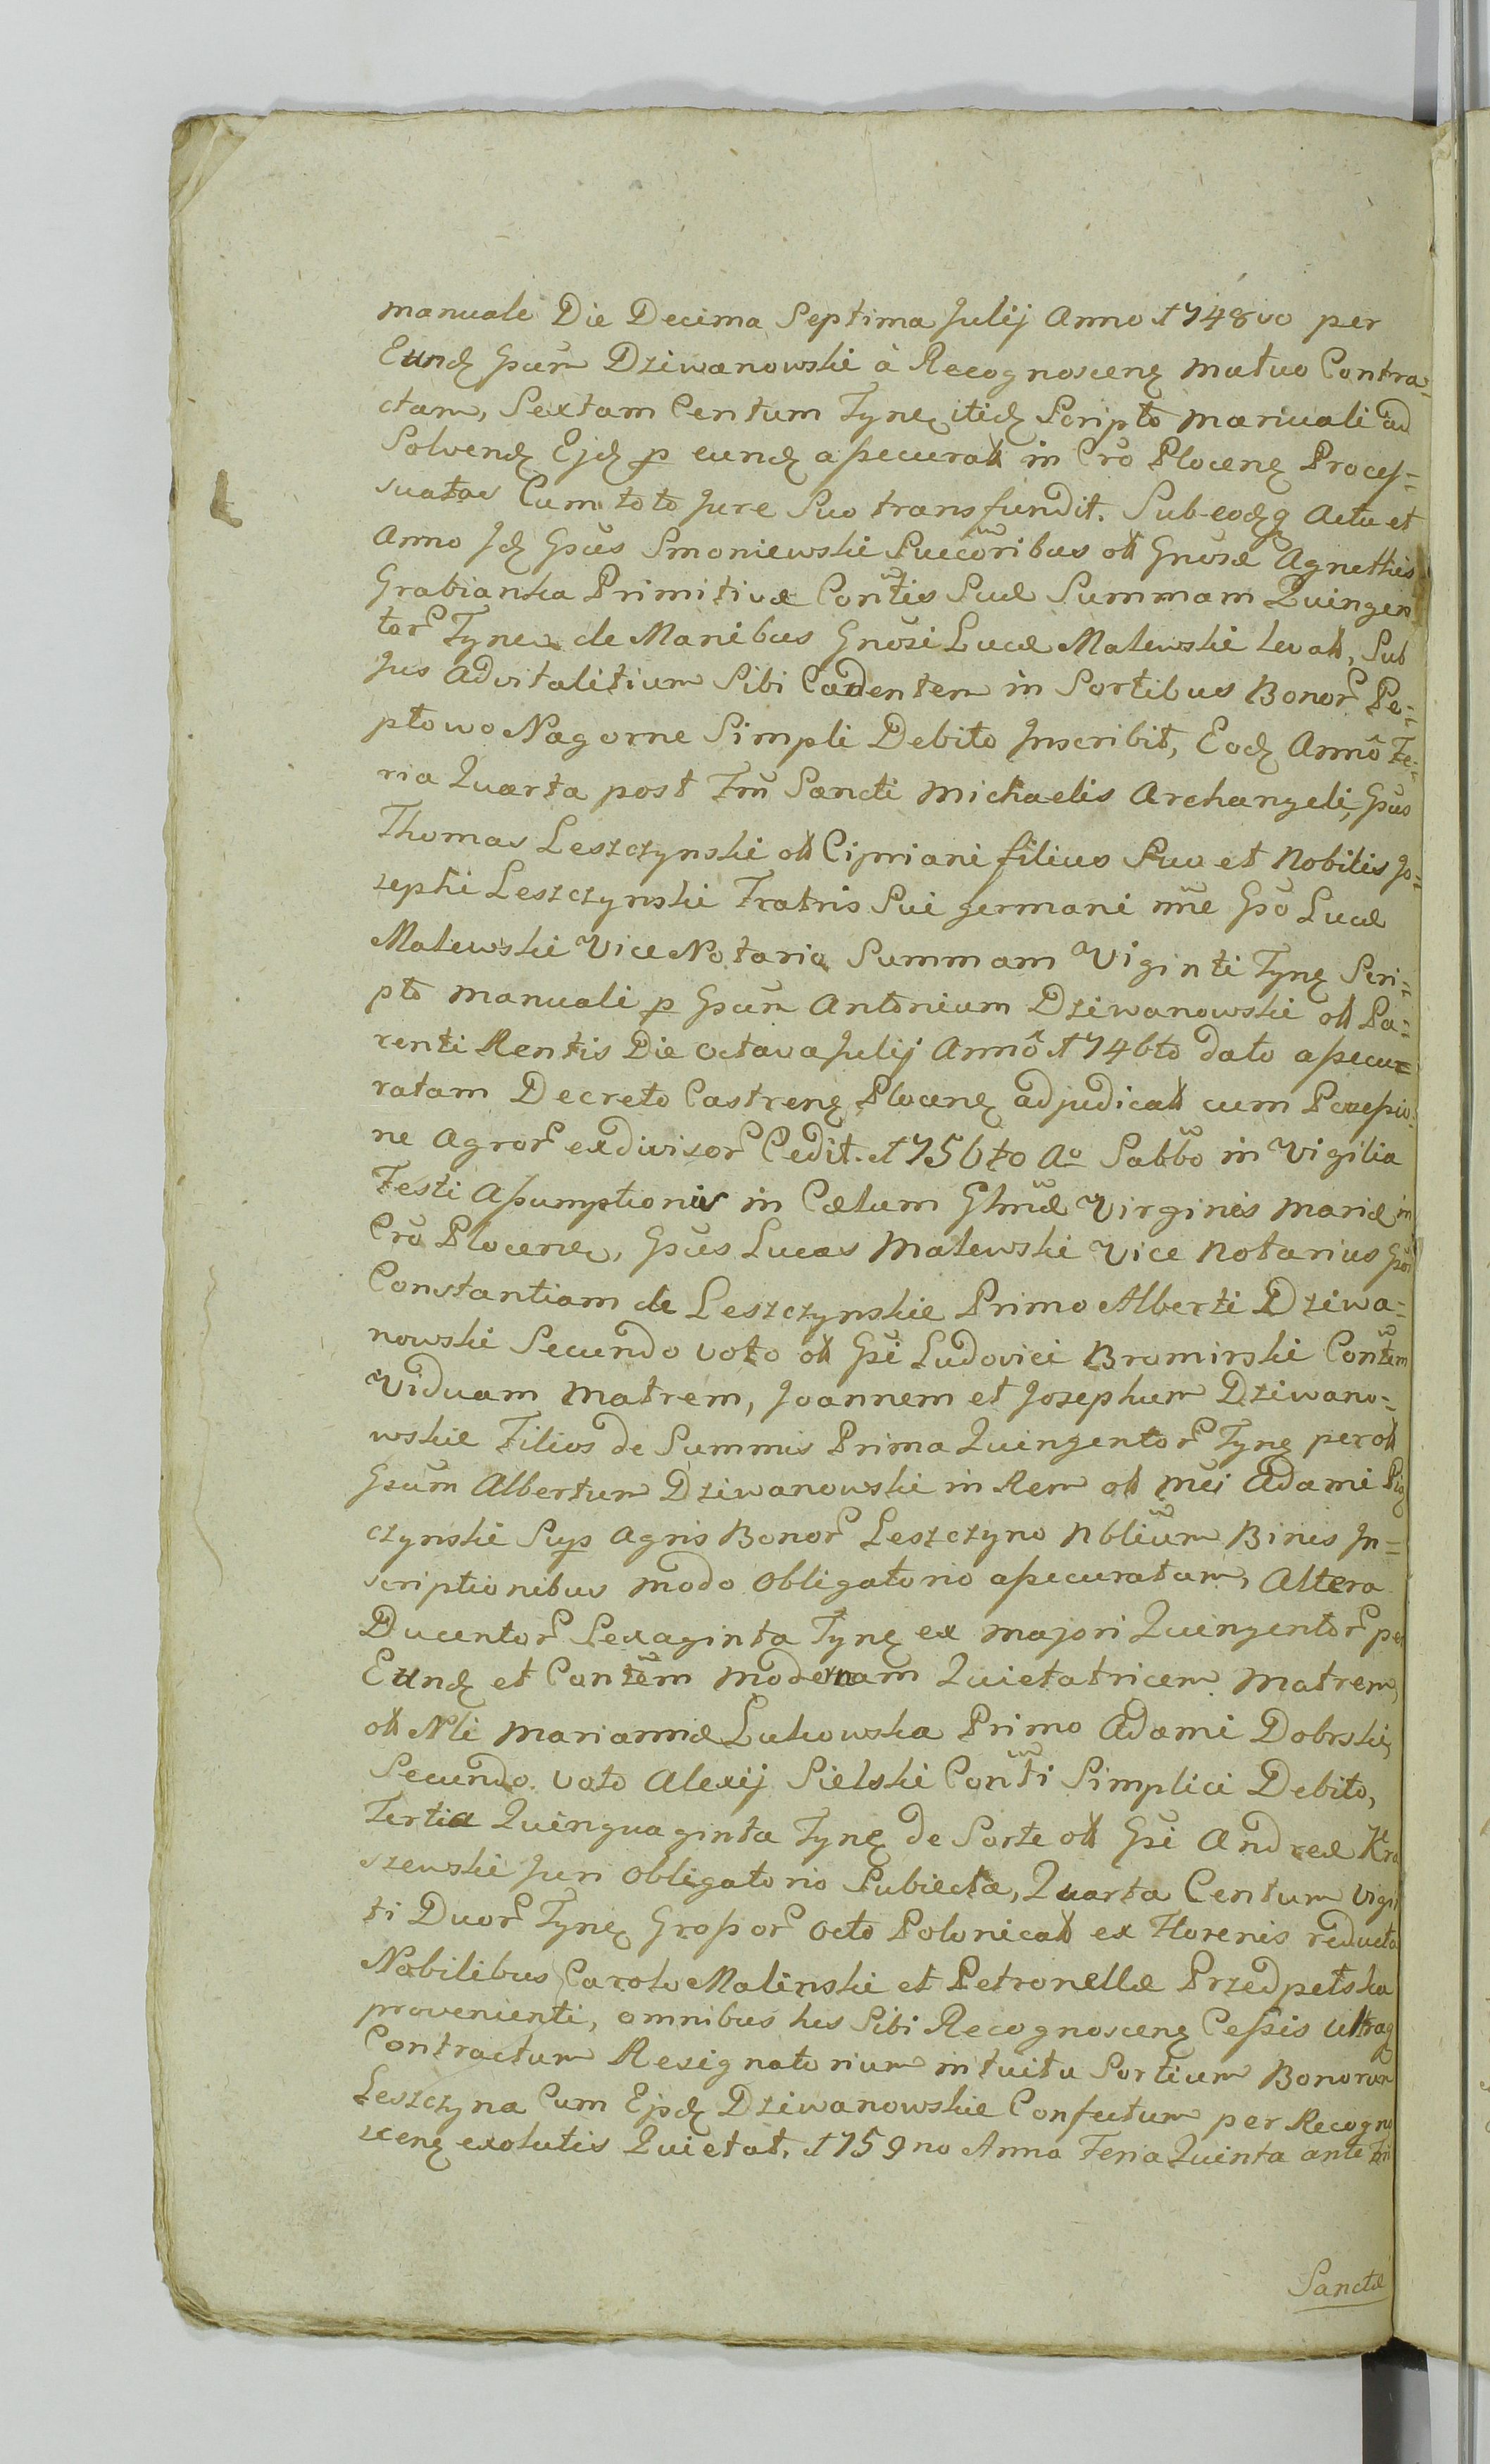 manuale Die Decima Septima Julij Anno 1748vo per
Eund Gsum Dziwanowski à Recognoscen mutuo Contra-
ctam, Sextam Centum Tynf itid Scripto manuali ad
Solvend Ejd p eund assecurat in Cro Plocen Proces-
suatas Cum toto Jure Suo transfundit. Sub eodq Actu et
Anno Jd Gsus Smoniewski Succoribus olt Gnosæ Agnethis
Grabianka Primitivæ Contis Suæ Summam Quingen
tor Tynf de Manibus Gnosi Lucæ Malewski levat, Sub
Jus Advitalitium Sibi Cadentem in Sortibus Bonor Pe-
ptowo Nagorne Simpli Debito Inscribit, Eod Anno Fe-
ria Quarta post Fm Sancti Michaelis Archangeli, Gsus
Thomas Leszczynski olt Cipriani filius Suo et Nobilis Jo-
sephi Leszczynski Fratris Sui germani nne Gso Lucæ
Malewski Vice Notario Summam Viginti Tynf Scri-
pto manuali p Gsum Antonium Dziwanowski olt Pa-
renti Rentis Die octava Julij Anno 1746to dato assecu-
ratam Decreto Castren Plocen adjudicat cum Possessio-
ne Agror exdivisor Cedit. 1756to Ao Sabbo in Vigilia
Festi Assumptionis in Cælum Glmæ Virginis Mariæ in
Cro Plocen, Gsus Lucas Malewski Vice Notarius Gsos
Constantiam de Leszczynskie Primo Alberti Dziwa-
nowski Secundo voto olt Gsi Ludovici Bromirski Contem
Viduam Matrem, Joannem et Josephum Dziwano-
wskie Filios de Summis Prima Quingentor Tynf per olt
Gsum Albertum Dziwanowski in Rem olt Mci Adami
czynski Sup Agris Bonor Leszczyno Nblium Binis In-
scriptionibus modo Obligatorio assecuratam, Altera
Ducentor Sexaginta Tynf ex majori Quingentor per
Eund et Contem modernam Quietatricem Matrem,
olt Nli Mariannæ Lukowska Primo Adami Dobrski,
Secundo voto Alexij Sielski Conti Simplici Debito,
Tertia Quinquaginta Tynf de Sorte olt Gsi Andreæ Kra
szewski Juri Obligatorio Subiecta, Quarta Centum Vigin
ti Duor Tynf Grossor octo Polonicat ex Florenis reducta
Nobilibus Carolo Malinski et Petronellæ Przedpełska
provenienti, omnibus his Sibi Recognoscen Cessis Ultraq
Contractum Resignatorium intuitu Sortium Bonorum
Leszczyna Cum Ejsd Dziwanowskie Confectum per Recogno
scen exolutis Quietat. 1759no Anno Feria Quinta ante Fm
Sanctæ